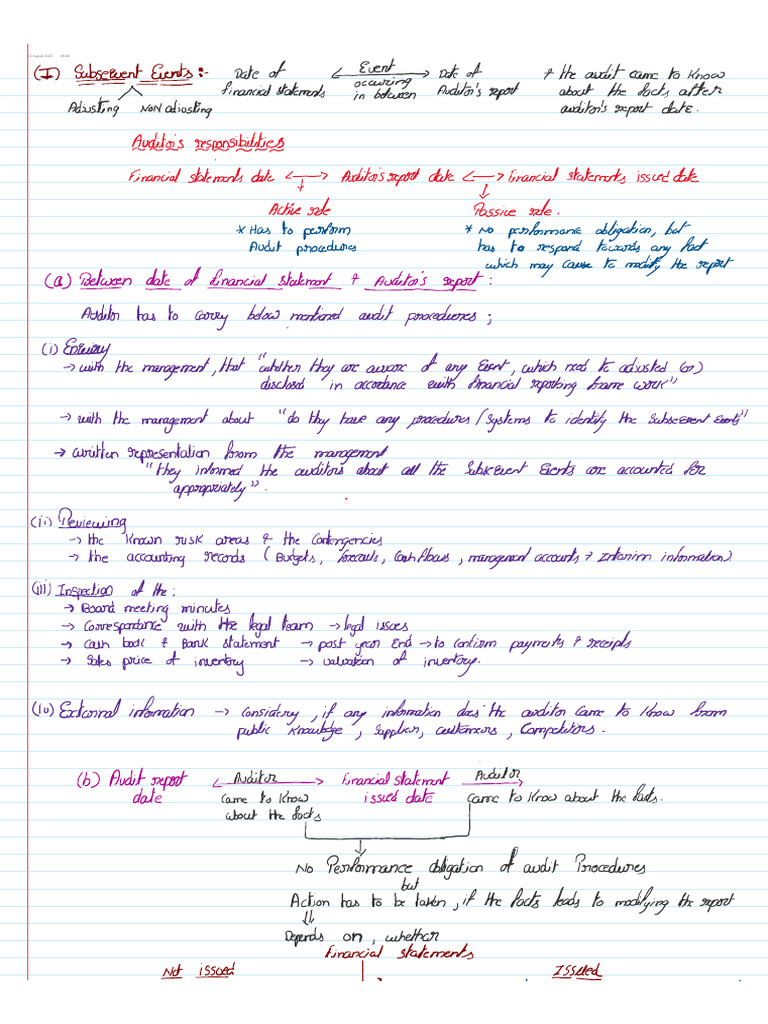 (I) Subsequent Events :- Date of Financial statements <- Event occuring in between -> Date of Auditor's report & the audit came to know about the facts after auditor's report date.
Adjusting Non adjusting
Auditor's responsibilities
Financial statements date <-> Auditor's report date <-> Financial statements issued date
Active role Passive role.
* Has to perform Audit procedures
* No performance obligation, but has to respond towards any fact which may cause to modify the report
(a) Between date of Financial statement & Auditor's report :
Auditor has to carry below mentioned audit procedures ;
(i) Enquiry
→ with the management, that "whether they are aware of any Event, which need to adjusted (or)
disclosed in accordance with financial reporting frame work"
→ with the management about "do they have any procedures / Systems to identify the Subsequent Events"
→ written representation from the management
"they informed the auditors about all the Subsequent Events are accounted for
appropriately".
(ii) Reviewing
→ the known risk areas & the Contingencies
→ the accounting records ( Budgets, forecasts, Cash flows, management accounts & Interim information)
(iii) Inspection of the :
→ Board meeting minutes
→ Correspondance with the legal team → legal issues
→ Cash book & Bank statement → post year End → to confirm payments & receipts
→ Sales price of inventory → valuation of inventory.
(iv) External information → Considering, if any information does the auditor came to know from
public knowledge, Suppliers, customers, Competitors.
(b) Audit report date <- Auditor came to know about the facts -> Financial statement issued date Auditor -> came to know about the facts.
No Performance obligation of audit Procedures
but
Action has to be taken, if the facts leads to modifying the report
Depends on, whether
Financial statements
Not issued Issued